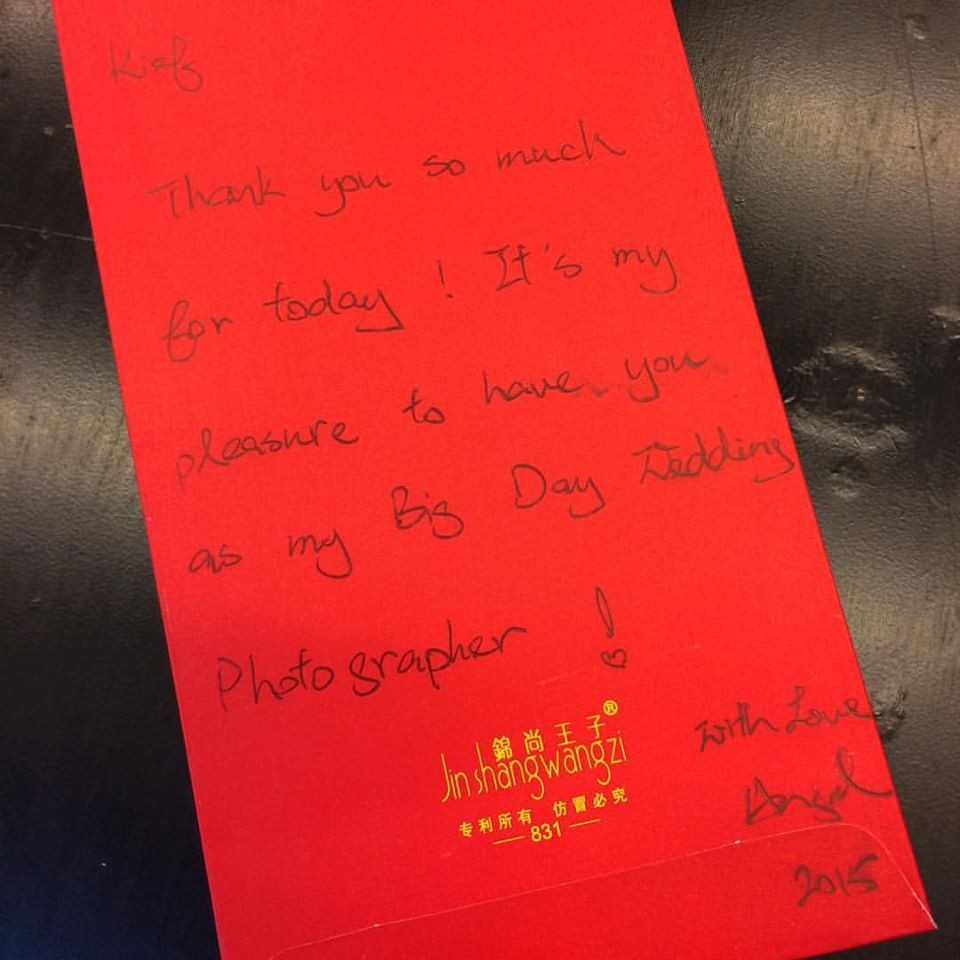 Kief
Thank you so much
for today ! It's my
pleasure to have you
as my Big Day Wedding
Photographer !
錦尚王子®
Jinshangwangzi
专利所有 仿冒必究
831
with Love
Angel
2015